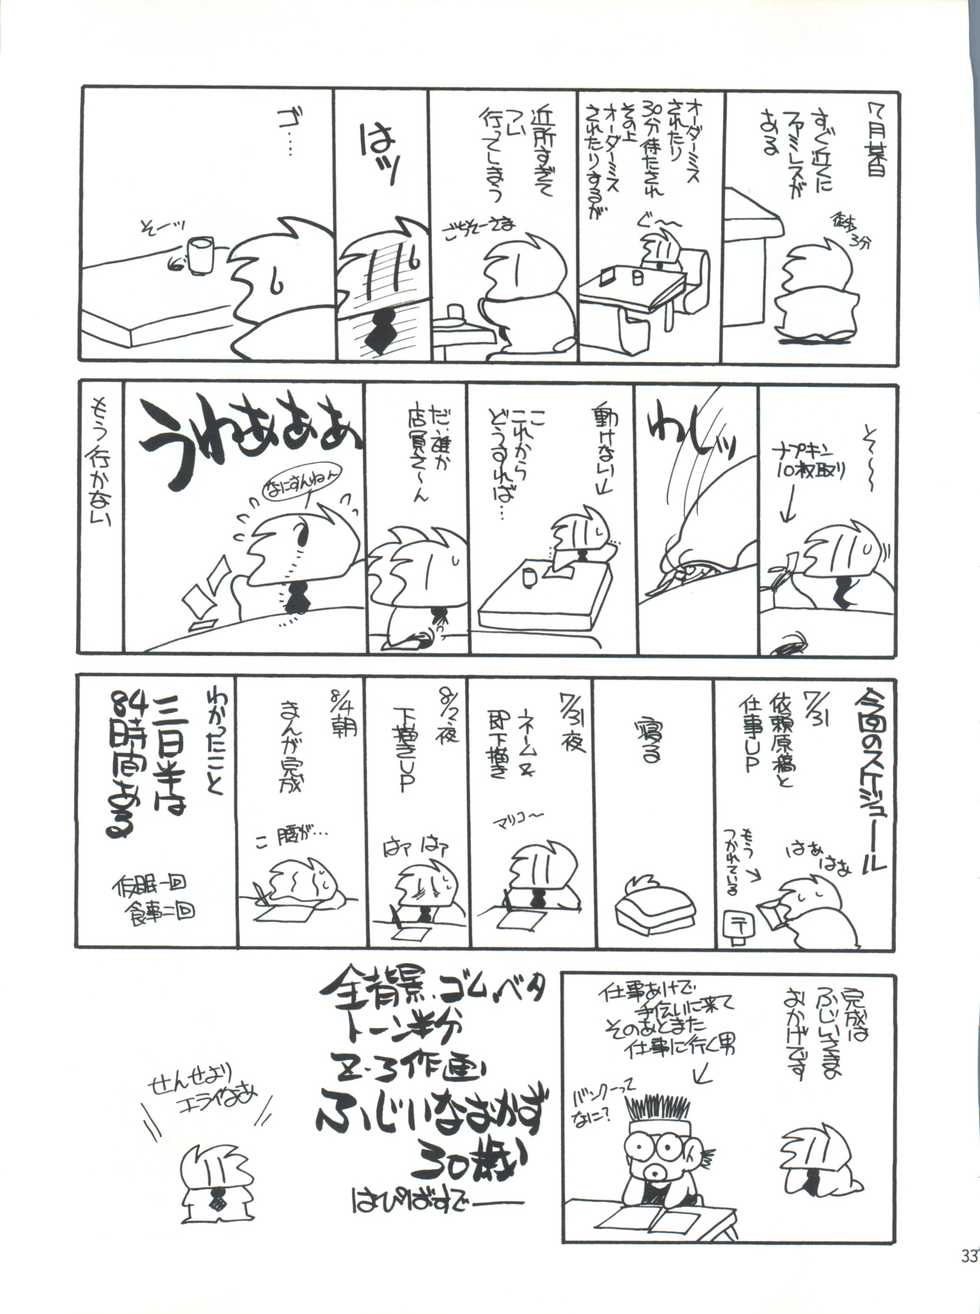 7月某日
すぐ近くに
ファミレスが
ある
徒歩
3分
オーダーミス
されたり
30分待たされ
その上
オーダーミス
されたりするが
ぐ〜
近所すぎて
つい
行ってしまう
ごちそーさま
はッ
ゴ…
そーッ
そ〜〜
ナプキン
10枚取り
わしッ
動けない
こ
これから
どうすれば…
だ、誰か
店員さ〜ん
うわあああぁ
なにすんねん
もう行かない
今回のスケジュール
7/31
依頼原稿と
仕事UP
はぁ
はぁ
もう
つかれている
〒
寝る
7/31夜
ネーム&
即下描き
マリコ〜
8/2夜
下描きUP
はァ はァ
8/4朝
まんが完成
こ 腰が…
わかったこと
三日半は
84時間ある
仮眠一回
食事二回
完成は
ふじいさまの
おかげです
仕事あけで
手伝いに来て
そのあとまた
仕事に行く男
バンクーって
なに?
全背景、ゴム、ベタ
トーン半分
2・3作画、
ふじいなおかず
30歳
はぴばすでー
せんせより
エライなあ
33